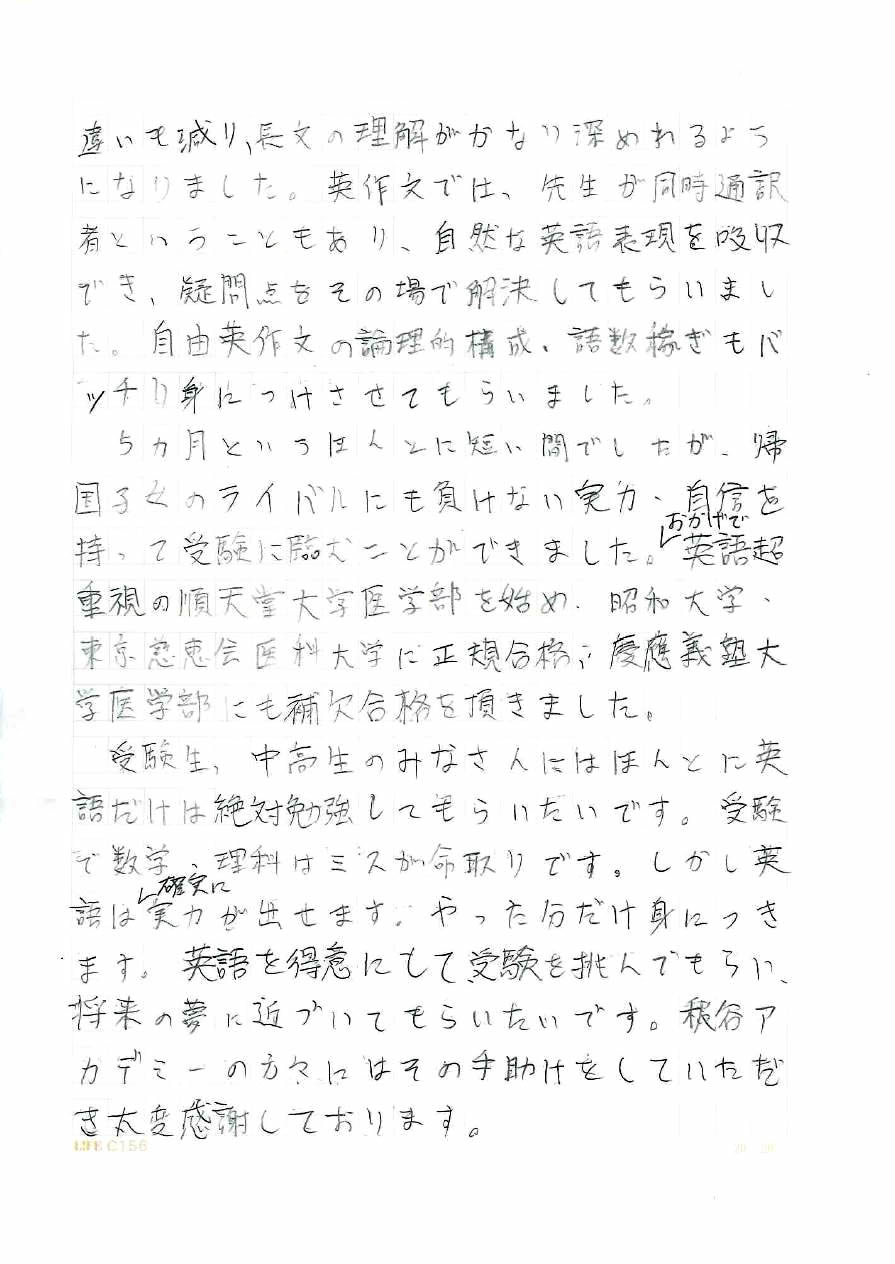 違いも減り、長文の理解がかなり深めれるよう
になりました。英作文では、先生が同時通訳
者ということもあり、自然な英語表現を吸収
でき、疑問点をその場で解決してもらいまし
た。自由英作文の論理的構成、語数稼ぎもバ
ッチリ身につけさせてもらいました。
5カ月というほんとに短い間でしたが、帰
国子女のライバルにも負けない実力、自信を
おかげで
持って受験に臨むことができました。英語超
重視の順天堂大学医学部を始め、昭和大学、
東京慈恵会医科大学に正規合格、慶應義塾大
学医学部にも補欠合格を頂きました。
受験生、中高生のみなさんにはほんとに英
語だけは絶対勉強してもらいたいです。受験
で数学、理科はミスが命取りです。しかし英
確実に
語は実力が出せます。やった分だけ身につき
ます。英語を得意にして受験を挑んでもらい、
将来の夢に近づいてもらいたいです。穐谷ア
カデミーの方々にはその手助けをしていただ
き大変感謝しております。
LIFE C156
20 20